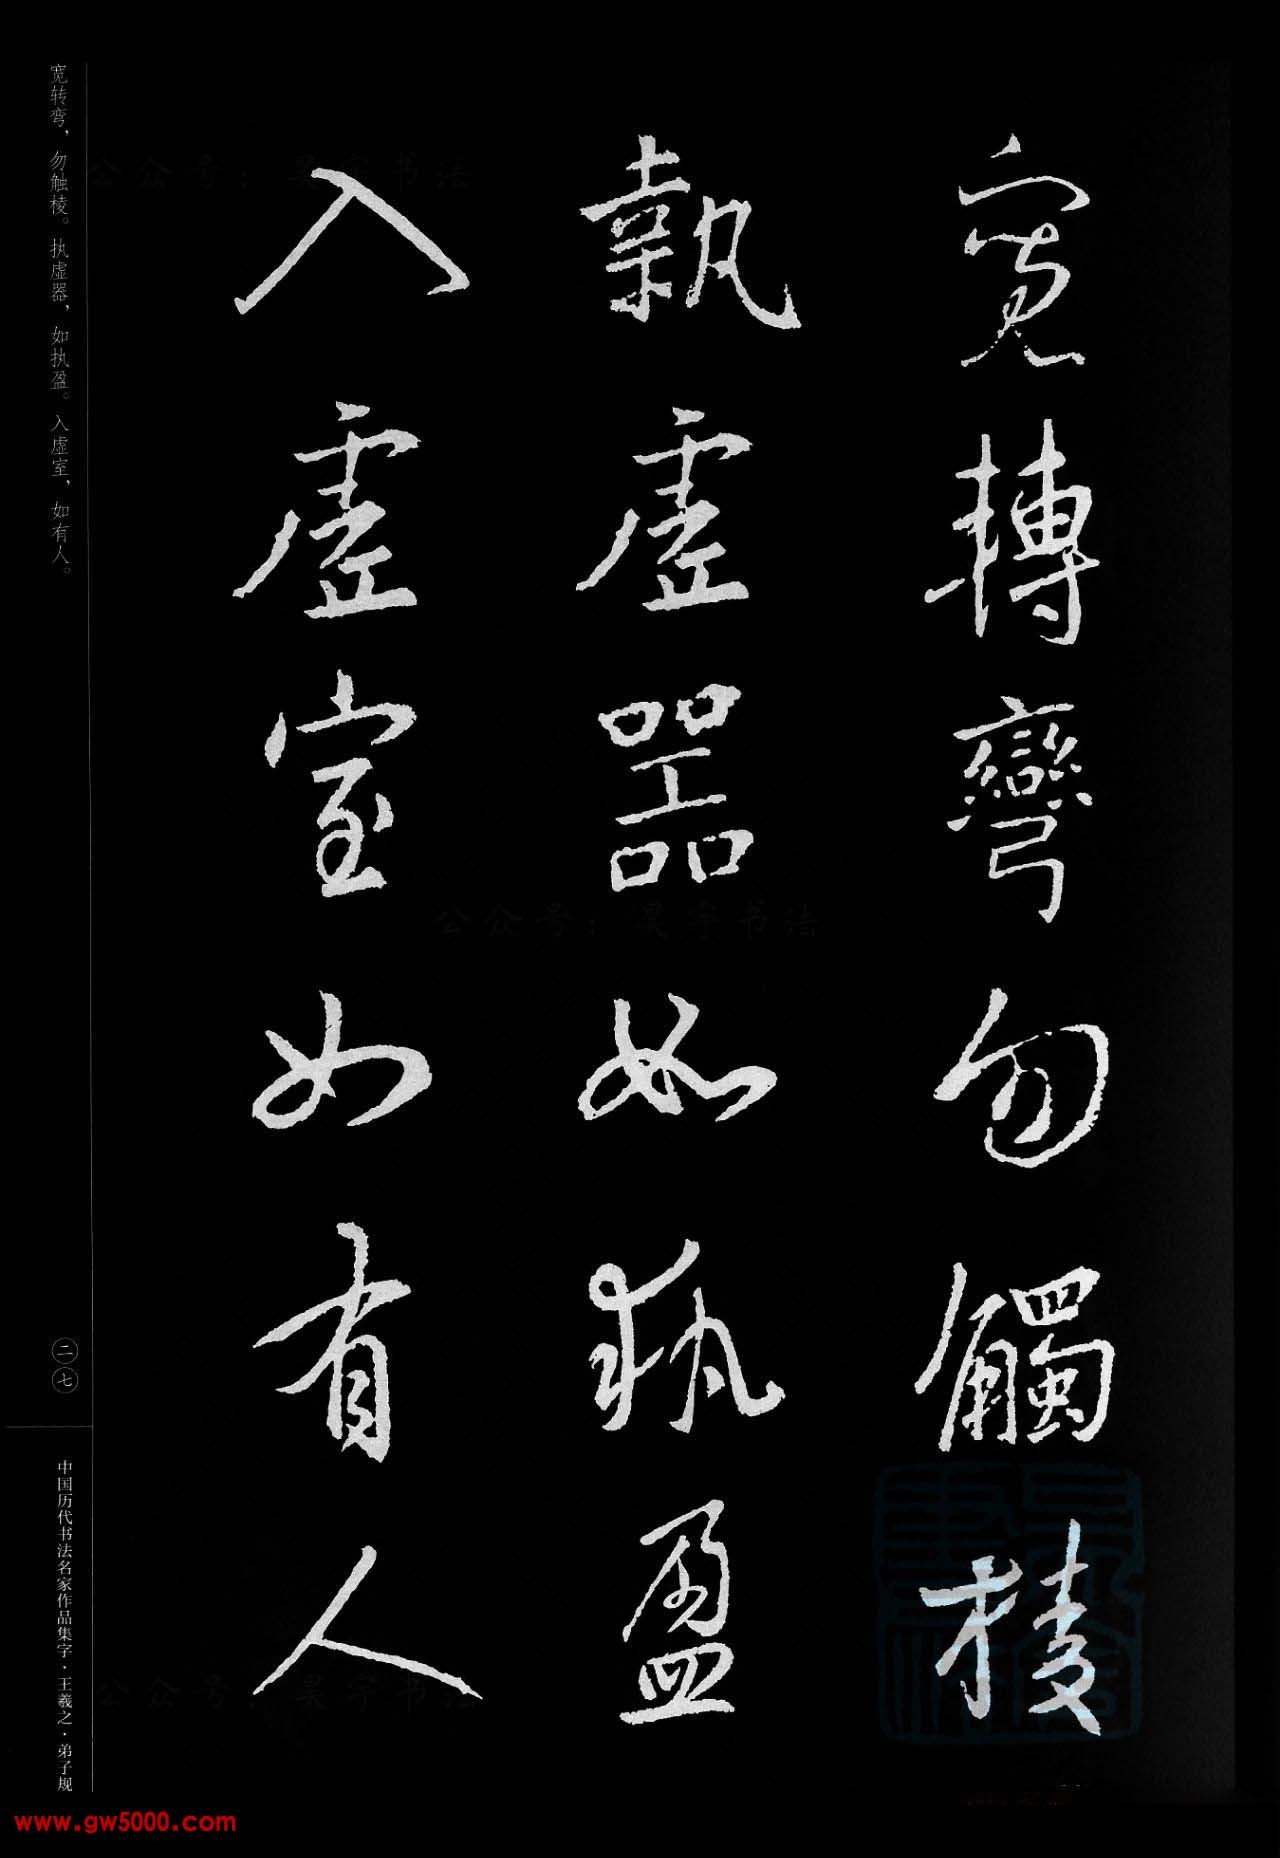 寬轉彎勿觸棱
執虛器如執盈
入虛室如有人
宽转弯，勿触棱。执虚器，如执盈。入虚室，如有人。
二七
中国历代书法名家作品集字·王羲之·弟子规
公众号：昊字书法
公众号：昊字书法
公众号：昊字书法
www.gw5000.com